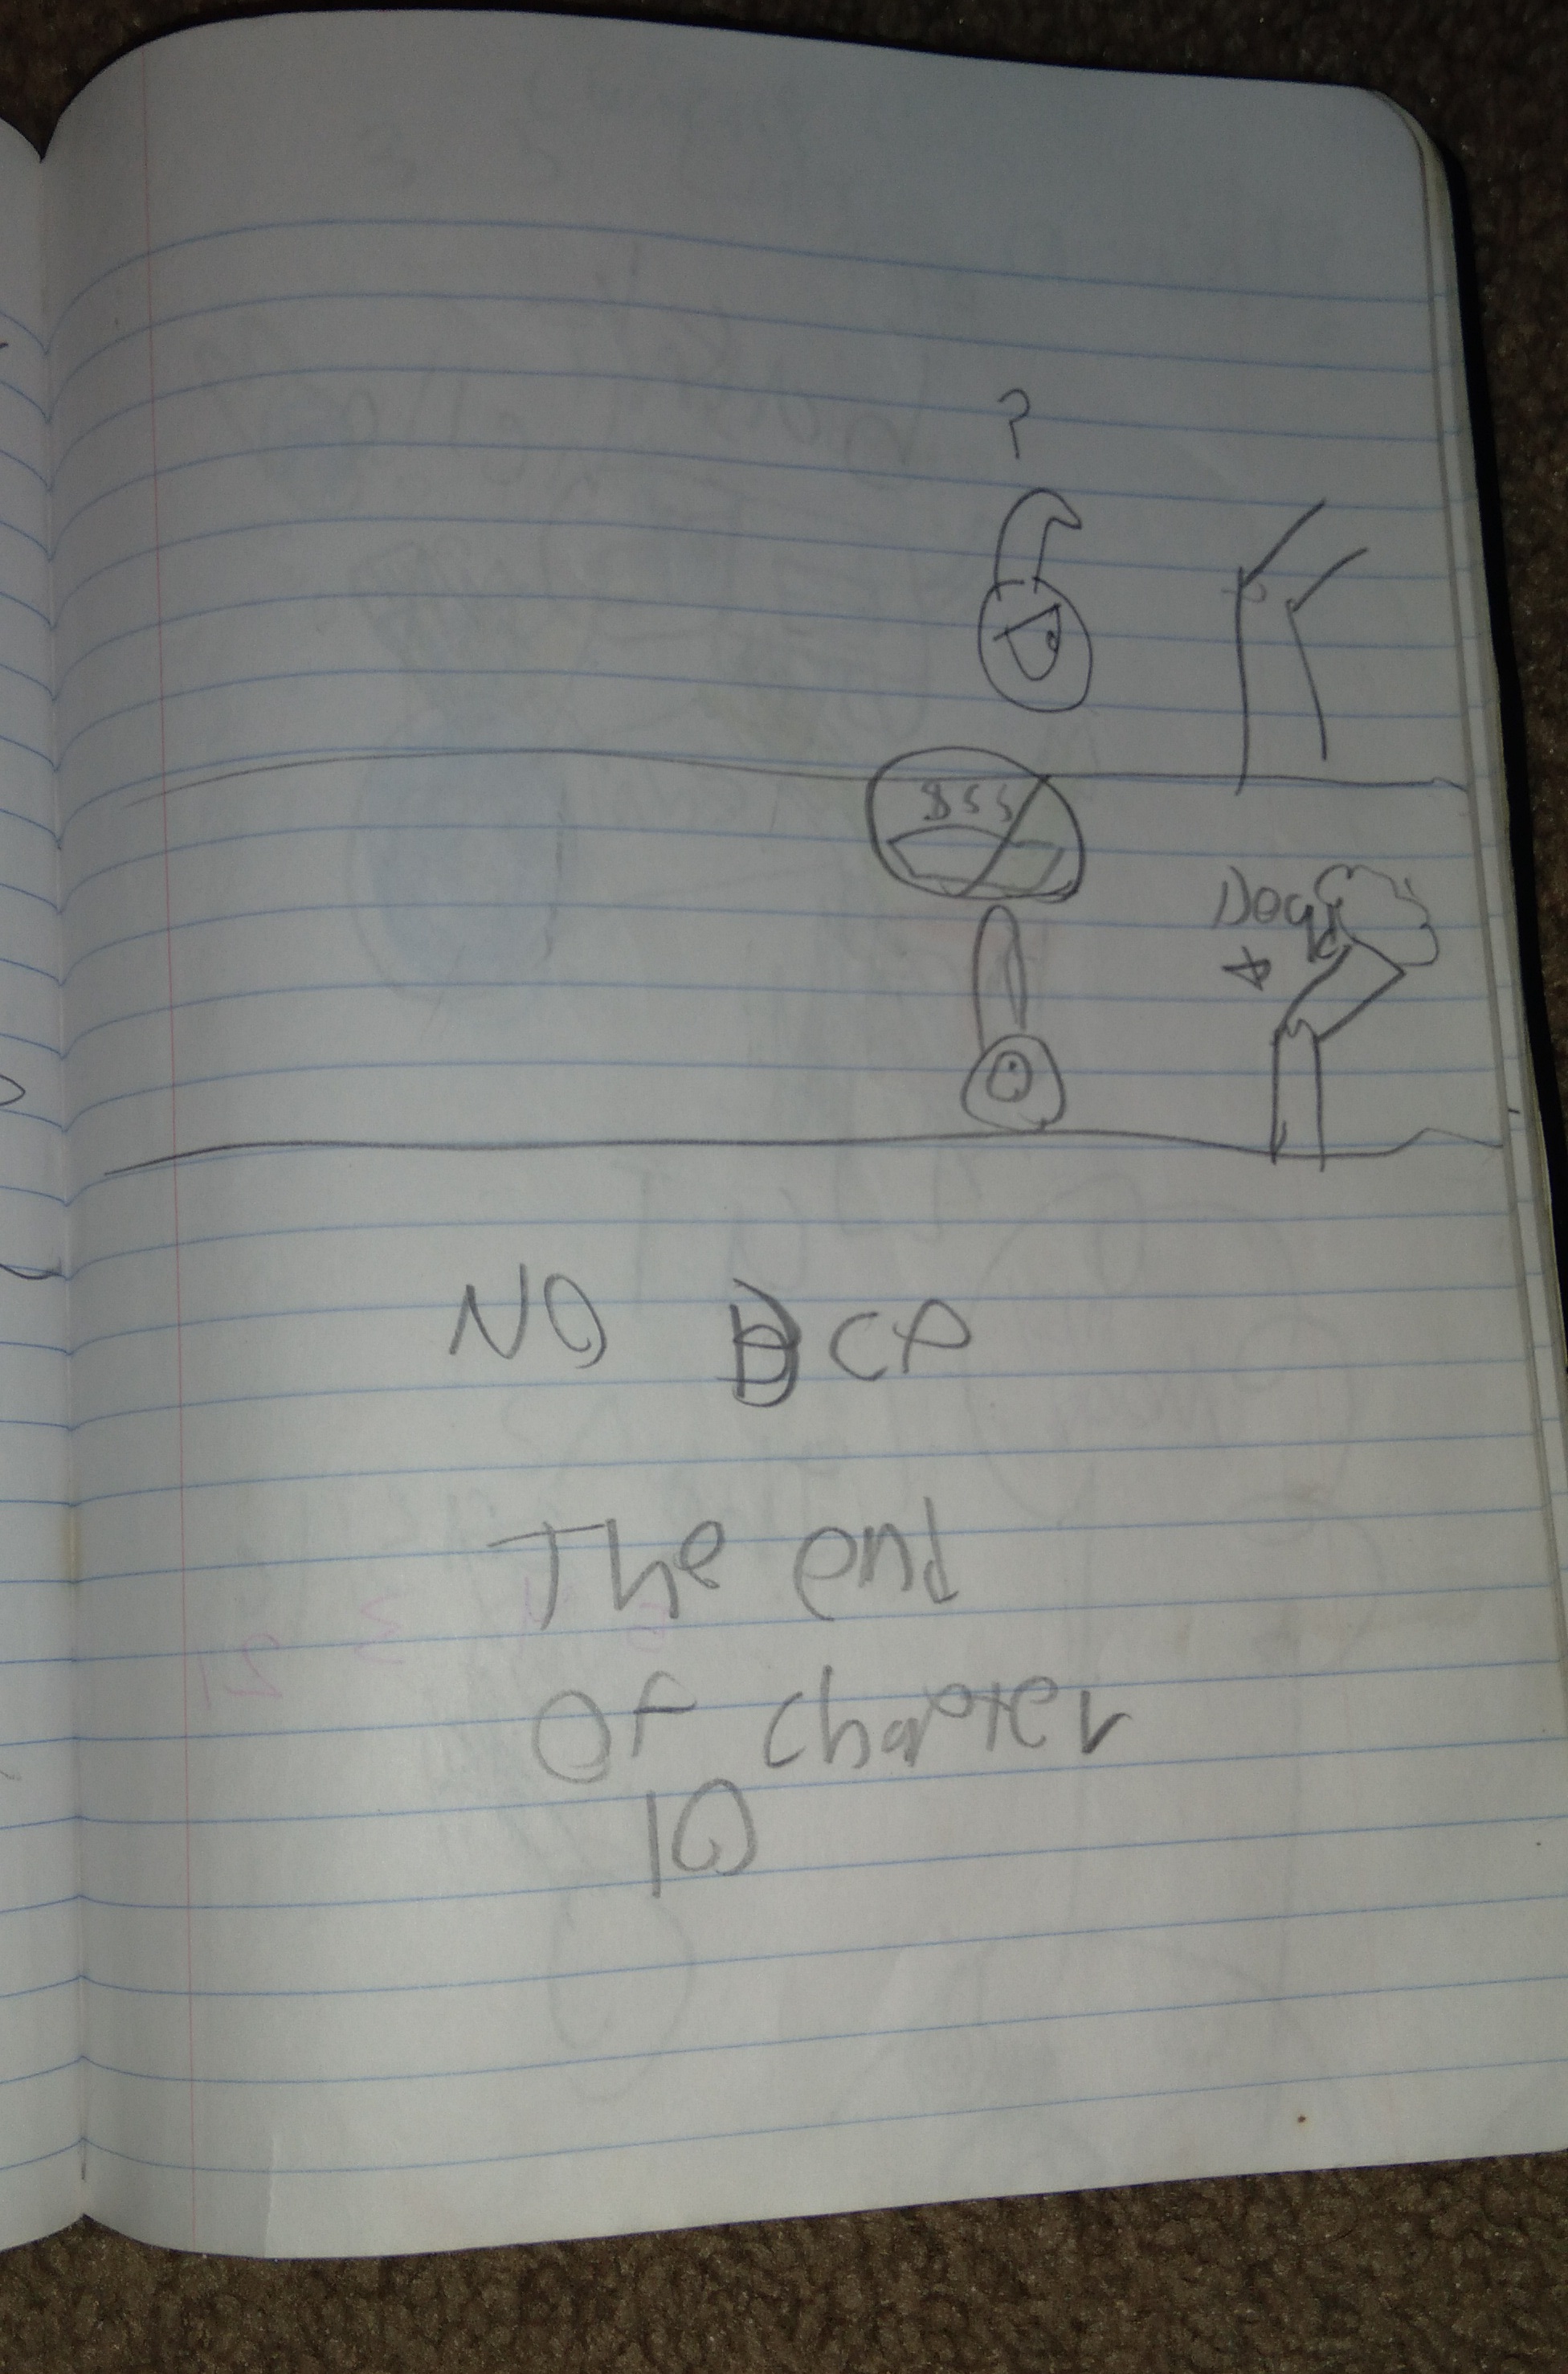 ?
$$$
NO DCP
The end
Of chapter
10